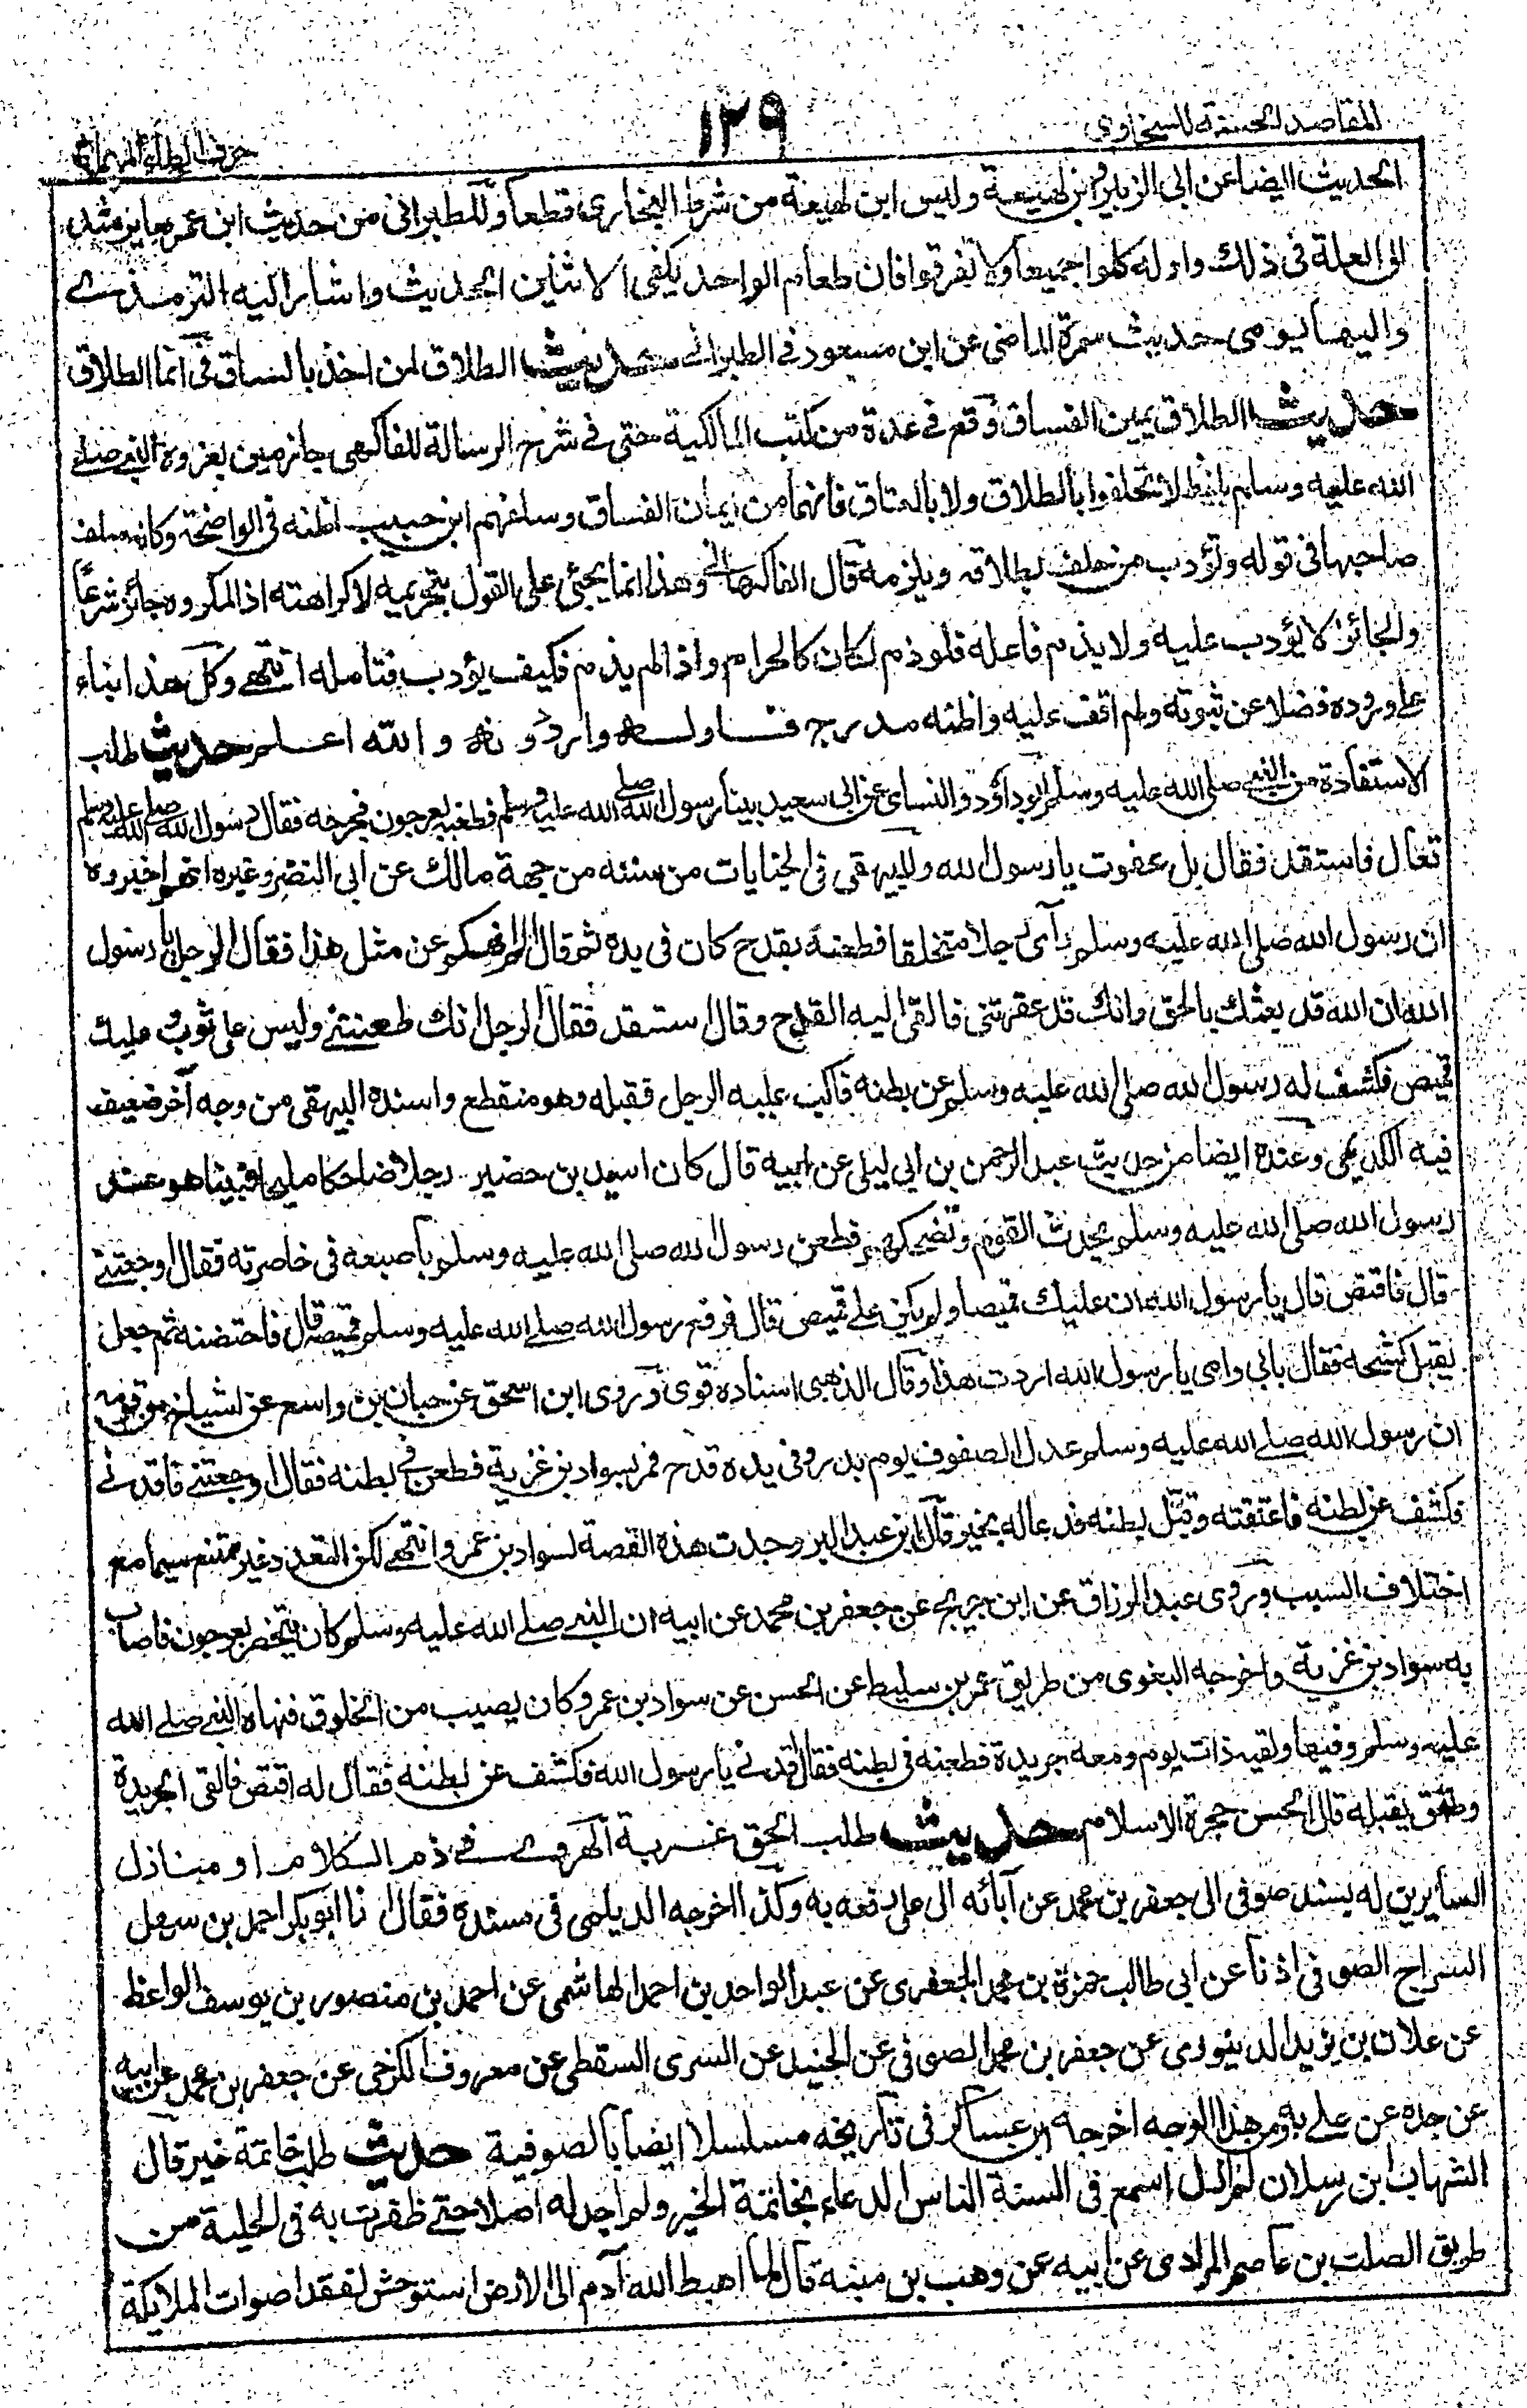 المقاصد الحسنة للسخاوي
١٢٩
حرف الطاء المهملة
الحديث ايضا عن ابى الزبير ابن لهيعة وليس ابن لهيعة من شرط البخارى قطعا وللطبرانى من حديث ابن عمر ما يرشد
الى العلة فى ذلك واوله كلوا جميعا ولا تفرقوا فان طعام الواحد يكفى الاثنين الحديث واشار اليه الترمذى
واليهما يومى حديث سمرة الماضى عن ابن مسعود فى الطبرانى حديث الطلاق لمن اخذ بالساق فى انما الطلاق
حديث الطلاق يمين الفساق وقع فى عدة من كتب المالكية حتى فى شرح الرسالة للفاكهى جازمين بعزوه النبى صلى
الله عليه وسلم بلفظ لا تحلفوا بالطلاق ولا بالعتاق فانهما من ايمان الفساق وسلفهم ابن حبيب اظنه فى الواضحة وكانه سلف
صاحبها فى قوله وتؤدب من حلف بطلاق ويلزمه قال الفاكهانى وهذا انما يجئ على القول بتحريمه لا كراهته اذ المكروه جائز شرعا
والجائز لا يؤدب عليه ولا يذم فاعله فلو ذم لكان كالحرام واذا لم يذم فكيف يؤدب فتأمله انتهى وكل هذا بناء
على وروده فضلا عن ثبوته ولم اقف عليه واظنه مدرج فـاولـه وارد دونه والله اعلم حديث طلب
الاستقادة من النبى صلى الله عليه وسلم ابو داؤد والنساى عن ابى سعيد بينا رسول الله صلى الله عليه وسلم فطعنه بعرجون فجرحه فقال رسول الله صلى الله عليه وسلم
تعال فاستقد فقال بل عفوت يا رسول الله وللبيهقى فى الجنايات من سننه من جهة مالك عن ابى النضر وغيره انهم اخبروه
ان رسول الله صلى الله عليه وسلم رأى رجلا متخلقا فطعنه بقدح كان فى يده ثم قال الم انهكم عن مثل هذا فقال الرجل يا رسول
الله ان الله قد بعثك بالحق وانك قد عقرتنى فالقى اليه القدح وقال استقد فقال الرجل انك طعنتنى وليس على ثوب وعليك
قميص فكشف له رسول الله صلى الله عليه وسلم عن بطنه فاكب عليه الرجل فقبله وهو منقطع واسنده البيهقى من وجه آخر ضعيف
فيه الكديمى وعنده ايضا من حديث عبد الرحمن بن ابى ليلى عن ابيه قال كان اسيد بن حضير رجلا ضاحكا مليحا فبينا هو عند
رسول الله صلى الله عليه وسلم يحدث القوم ويضحكهم فطعن رسول الله صلى الله عليه وسلم باصبعه فى خاصرته فقال اوجعتنى
قال فاقتص قال يا رسول الله ان عليك قميصا ولم يكن على قميص قال فرفع رسول الله صلى الله عليه وسلم قميصه قال فاحتضنه ثم جعل
يقبل كشحه فقال بابى وامى يا رسول الله اردت هذا وقال الذهبى اسناده قوى وروى ابن اسحق عن حبان بن واسع عن اشياخ من قومه
ان رسول الله صلى الله عليه وسلم عدل الصفوف يوم بدر وفى يده قدح فمر بسواد بن غزية فطعن فى بطنه فقال اوجعتنى فاقدنى
فكشف عن بطنه فاعتنقه وقبل بطنه فدعا له بخير قال ابن عبد البر وجدت هذه القصة لسواد بن عمرو انتهى لكن التعدد غير ممتنع سيما مع
اختلاف السبب وروى عبد الرزاق عن ابن جريج عن جعفر بن محمد عن ابيه ان النبى صلى الله عليه وسلم كان يتخصر بعرجون فاصاب
به سواد بن غزية واخرجه البغوى من طريق عمر بن سليط عن الحسن عن سواد بن عمرو كان يصيب من الخلوق فنهاه النبى صلى الله
عليه وسلم وفيها ولقيه ذات يوم ومعه جريدة فطعنه فى بطنه فقال اقدنى يا رسول الله فكشف عن بطنه فقال له اقتص فالقى الجريدة
وطفق يقبله قال الحسن حجزة الاسلام حديث طلب الحق غربة الهروى فى ذم الكلام او منازل
السايرين له بسند صوفى الى جعفر بن محمد عن آبائه الى على رفعه به وكذا اخرجه الديلمى فى مسنده فقال انا ابو بكر احمد بن سهل
السراج الصوفى اذنا عن ابى طالب حمزة بن محمد الجعفرى عن عبد الواحد بن احمد الهاشمى عن احمد بن منصور بن يوسف الواعظ
عن علان بن يزيد الدينورى عن جعفر بن محمد الصوفى عن الجنيد عن السرى السقطى عن معروف الكرخى عن جعفر بن محمد عن ابيه
عن جده عن على به ومن هذا الوجه اخرجه ابن عساكر فى تاريخه مسلسلا ايضا بالصوفية حديث طلب خاتمة خير قال
الشهاب ابن رسلان لم ازل اسمع فى السنة الناس الدعاء بخاتمة الخير ولم اجد له اصلا حتى ظفرت به فى الحلية من
طريق الصلت بن عاصم المرادى عن ابيه عن وهب بن منبه قال لما اهبط الله آدم الى الارض استوحش لفقد اصوات الملايكة